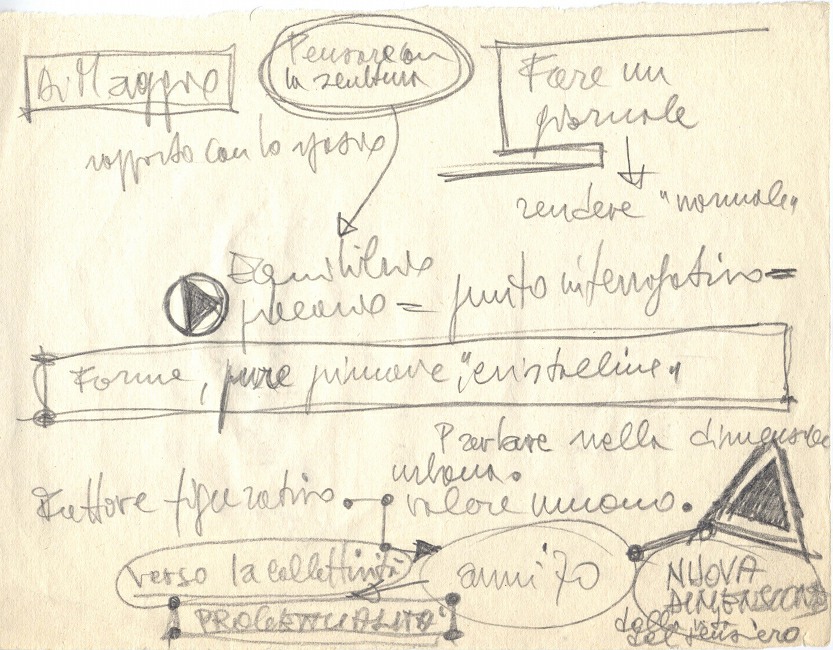 Di Maggio
Pensare con
la scultura
Fare un
giornale
rapporto con lo spazio
rendere "normale"
Equilibrio
precario = punto interrogativo =
Forme, pure primarie "cristalline"
Portare nella dimensione
urbana.
Fattore figurativo.
valore umano.
verso la collettività
anni '70
NUOVA
DIMENSIONE
del pensiero
PROGETTUALITÀ